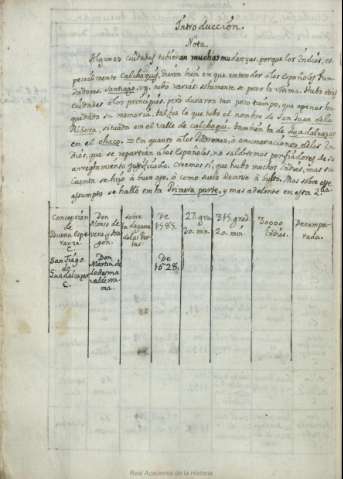 Introducción.
Nota.
Algunas ciudades tubieron muchas mudanzas, porque los Indios, es-
pecialmente Calchaquís, dieron bien en que entender á los Españoles Fun-
dadores. Santiago, vg. mudó varias
ciudades á los principios, pero duraron tan poco tiempo, que apenas ha
quedado su memoria. tal fue la que tubo el nombre de San Juan de la
Ribera, situada en el valle de Calchaqui. tambien la de Guadalcazar
en el chaco. = En quanto á las
Indios, que se repartian á los Españoles,
arreglamiento Creemos si, que hubo muchos Indios, mas su
cuenta se hizo á buen ojo, ó como suele decirse á bulto. Mas sobre este
assumpto se habló en la Primera parte, y mas adelante en esta 2da
Concepción de Buena Esperanza C.
Don Alonso de Vera y Aragon.
sobre la laguna de las Perlas
De 1585.
27. grad. 20. min.
315 grad. 20. min.
30000 Indios.
Desamparada.
Santiago de Guadalcazar C.
Don Martin de Ledesma Valderrama
De 1628.
Real Academia de la Historia